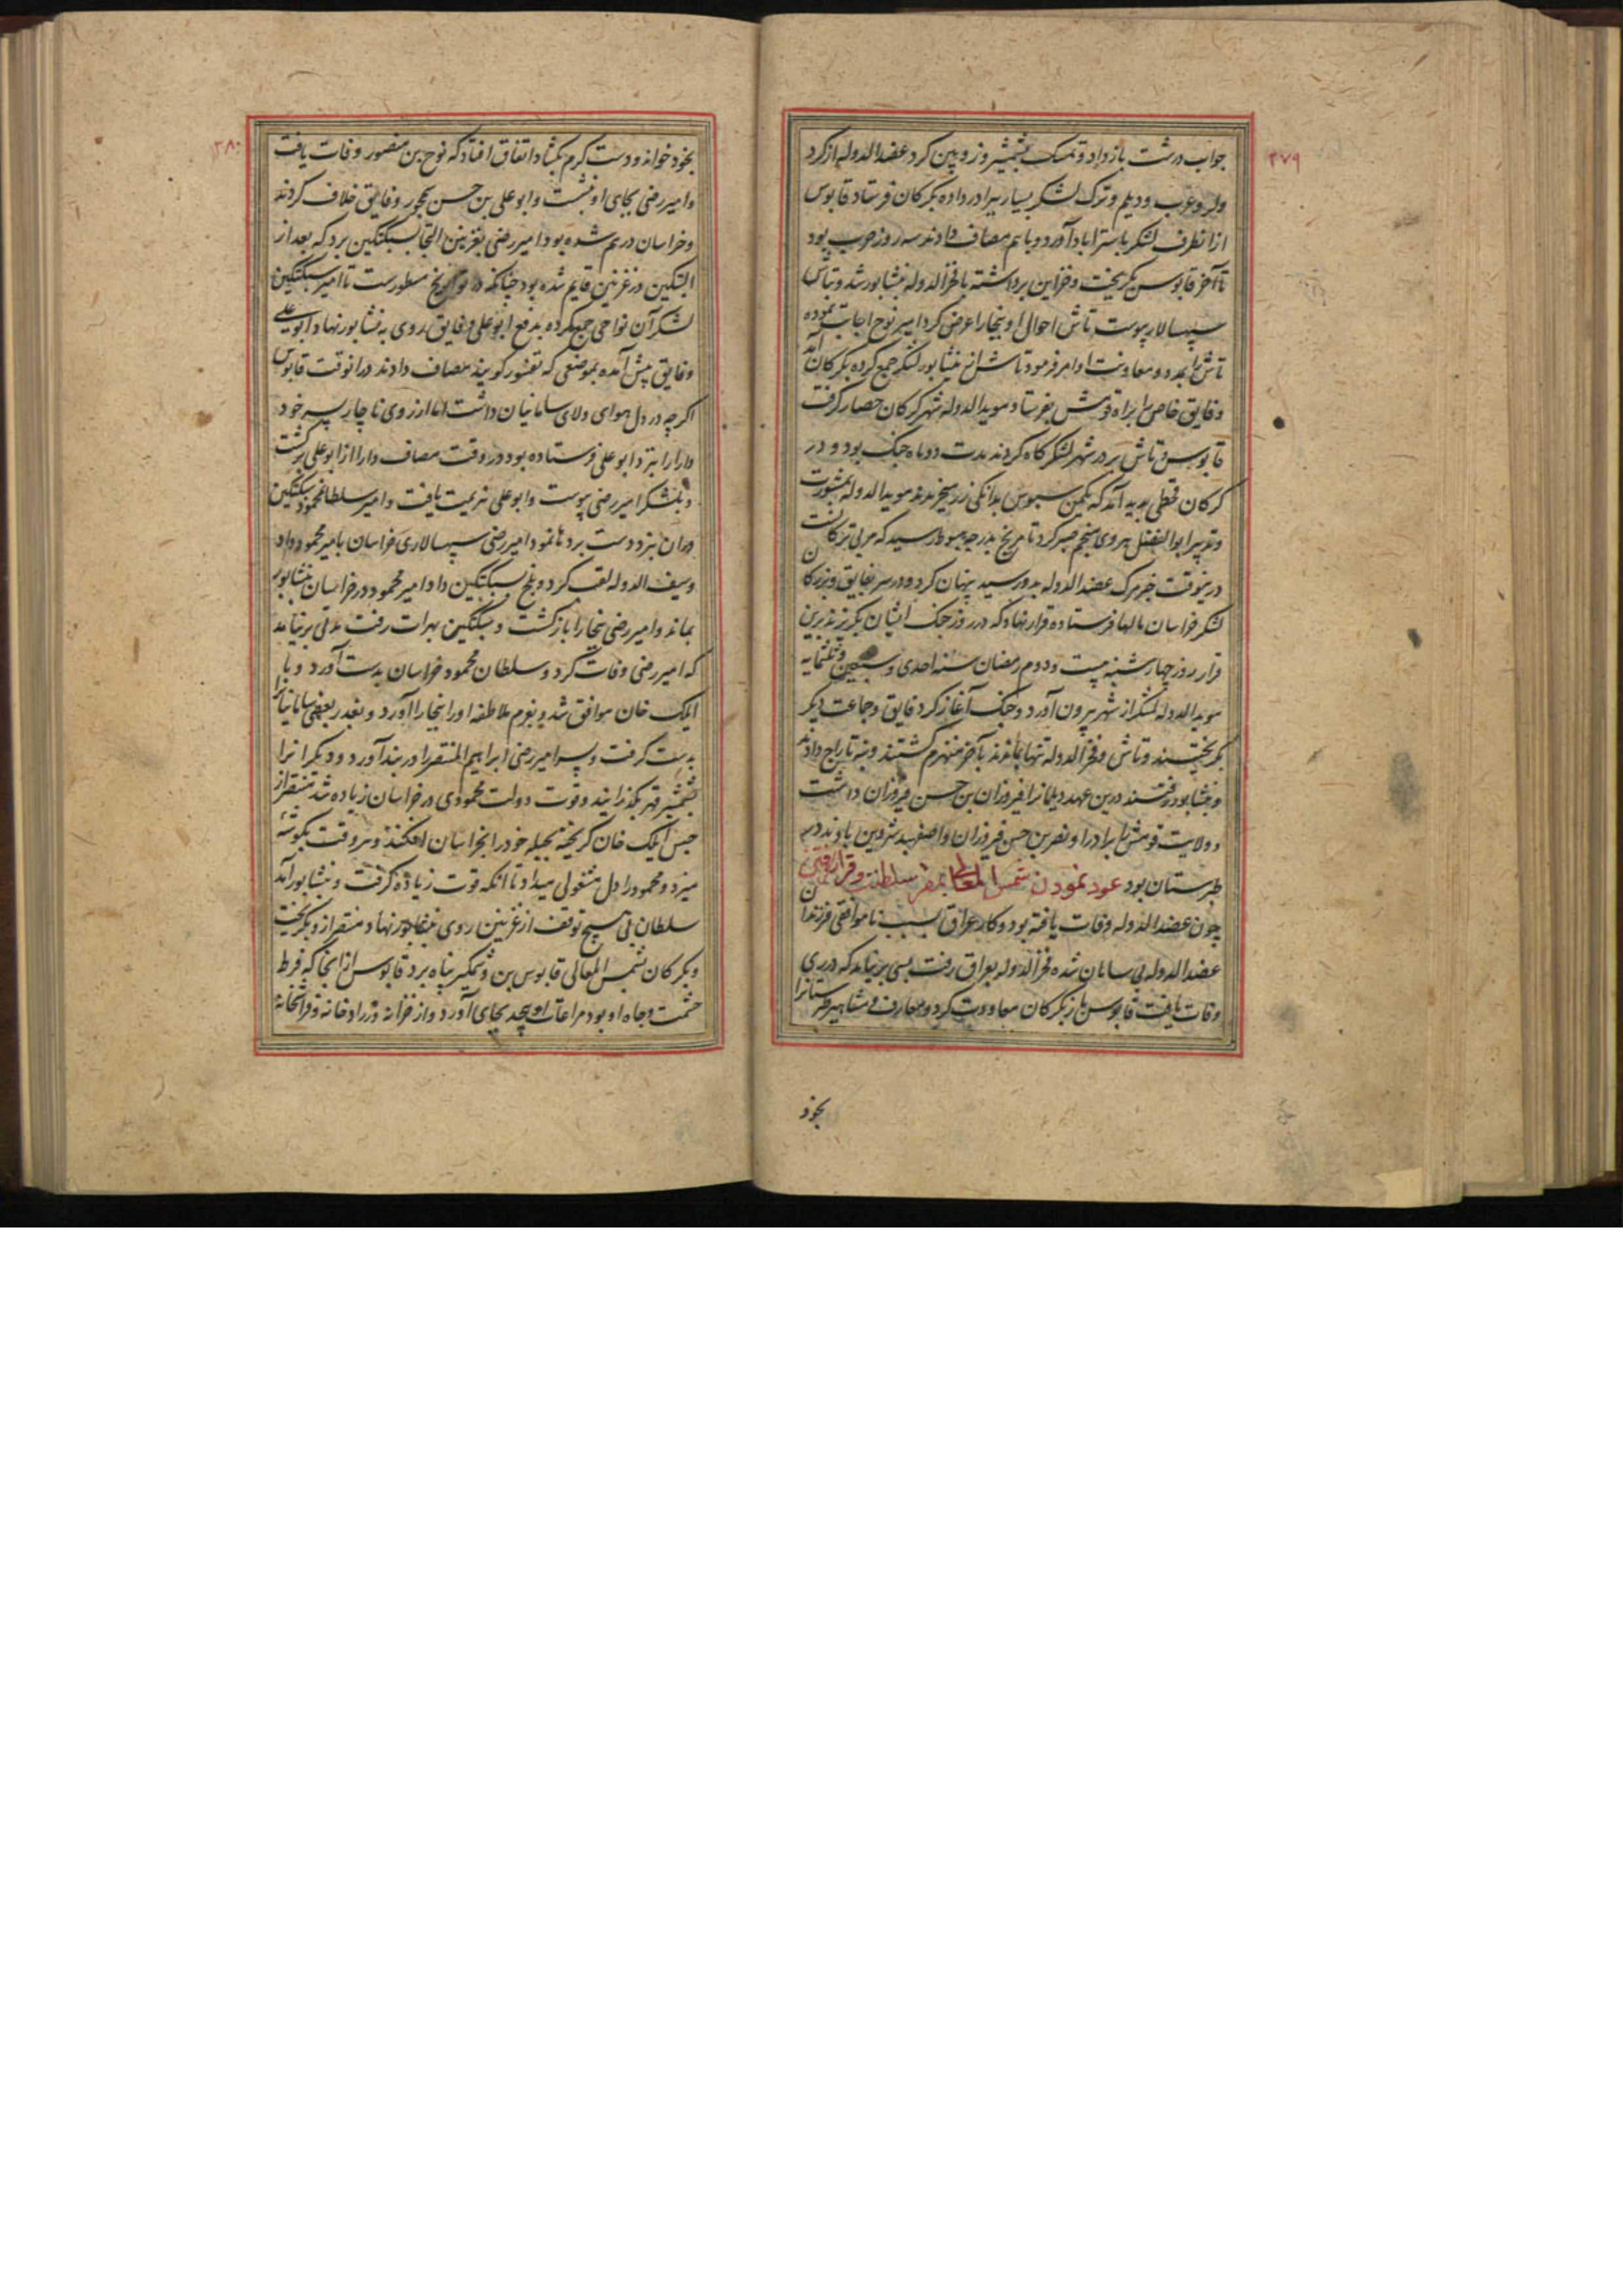 ۲۷۹
جواب درشت باز داد و تمسک بشمشیر و زوبین کرد عضدالدوله از کرد
ولر و عرب و دیلم و ترک لشکر بسیار ببرادر داده بکرکان فرستاد قابوس
ازانطرف لشکر باستراباد آورد و باهم مصاف دادند سه روز حرب بود
تا آخر قابوس بکریخت و خزاین برداشته با فخرالدوله بنشابور شد و بتاش
سپهسالار پیوست تاش احوال او ببخارا عرض کرد امیر نوح اجابت نموده
تاش را بمدد و معاونت او امر فرمود تاش از نشابور لشکر جمع کرده بکرکان آمد
و فایق خاص را براه قومش بفرستاد مویدالدوله شهر کرکان حصار کرفت
قابوس و تاش بر در شهر لشکرکاه کردند مدت دو ماه جنک بود و در
کرکان قحطی پدید آمد که یکمن سبوس بدانکی زر میخریدند مویدالدوله بمشورت
و تدبیر ابوالفضل هروی منجم صبر کرد تا مریخ بدرجه هبوط رسید که مربی ترکانست
درینوقت خبر مرک عضدالدوله بدو رسید پنهان کرد و در سر بفایق و بزرکان
لشکر خراسان مالها فرستاده قرار نهاد که در روز جنک ایشان بکریزند برین
قرار روز چهارشنبه بیست و دوم رمضان سنه احدی و سبعین و ثلثمایه
مویدالدوله لشکر از شهر بیرون آورد و جنک آغاز کرد فایق و جماعت دیکر
بکریختند و تاش و فخرالدوله تنها بماندند بآخر منهزم کشتند و بنه بتاراج دادند
و بنشابور رفتند درین عهد دیلمانرا فیروزان بن حسن فیروزان داشت
و ولایت قومش را برادر او نصر بن حسن فیروزان و اصفهبد شروین باوند در
طبرستان بود عود نمودن شمس المعالی بمقر سلطنت و قرار یافتن
چون عضدالدوله وفات یافته بود و کار عراق بسبب ناموافقی فرزندان
عضدالدوله بی سامان شده فخرالدوله بعراق رفت بسی برنیامد که در ری
وفات یافت قابوس باز بکرکان معاودت کرد و معارف و مشاهیر طبرستانرا
بخود
۲۸۰
بخود خواند و دست کرم بکشاد اتفاق افتاد که نوح بن منصور وفات یافت
و امیر رضی بجای او نشست و ابو علی بن حسن سیمجور و فایق خلاف کردند
و خراسان درهم شده بود امیر رضی بغزنین التجا بسبکتکین برد که بعد از
البتکین در غزنین قایم شده بود چنانکه در تواریخ مسطورست تا امیر سبکتکین
لشکر آن نواحی جمع کرده بدفع ابو علی و فایق روی به نشابور نهاد ابو علی
و فایق پیش آمده بموضعی که تغشور کویند مصاف دادند درانوقت قابوس
اکرچه در دل هوای ولای سامانیان داشت اما از روی ناچار پسر خود
دارا را بنزد ابو علی فرستاده بود در وقت مصاف دارا از ابو علی برکشت
و بلشکر امیر رضی پیوست و ابو علی هزیمت یافت و امیر سلطان محمود سبکتکین
دران نبرد دست بردها نمود امیر رضی سپهسالاری خراسان بامیر محمود داد
و سیف الدوله لقب کرد و بلخ بسبکتکین داد و امیر محمود در خراسان بنشابور
بماند و امیر رضی ببخارا باز کشت و سبکتکین بهرات رفت مدتی برنیامد
که امیر رضی وفات کرد و سلطان محمود خراسان بدست آورد و با
ایلک خان موافق شد و بعزم ملاطفه او را ببخارا آورد و بغدر بعضی سامانیانرا
بدست کرفت و پسر امیر رضی ابراهیم المنتصر را در بند آورد و دیکرانرا
بشمشیر قهر بکذرانید و قوت دولت محمودی در خراسان زیاده شد منتصر از
حبس ایلک خان کریخته بحیله خود را بخراسان افکند و هر وقت بکوشه
میزد و محمود را دل مشغولی میداد تا انکه قوت زیاده کرفت و بنشابور آمد
سلطان بی هیچ توقف از غزنین روی بنشابور نهاد و منتصر از و بکریخت
و بکرکان بشمس المعالی قابوس بن وشمکیر پناه برد قابوس از انجا که فرط
حشمت و جاه او بود مراعات او بیحد بجای آورد و از خزانه و زرادخانه و فراشخانه